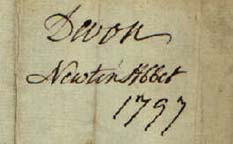 Devon
Newton Abbot
1797